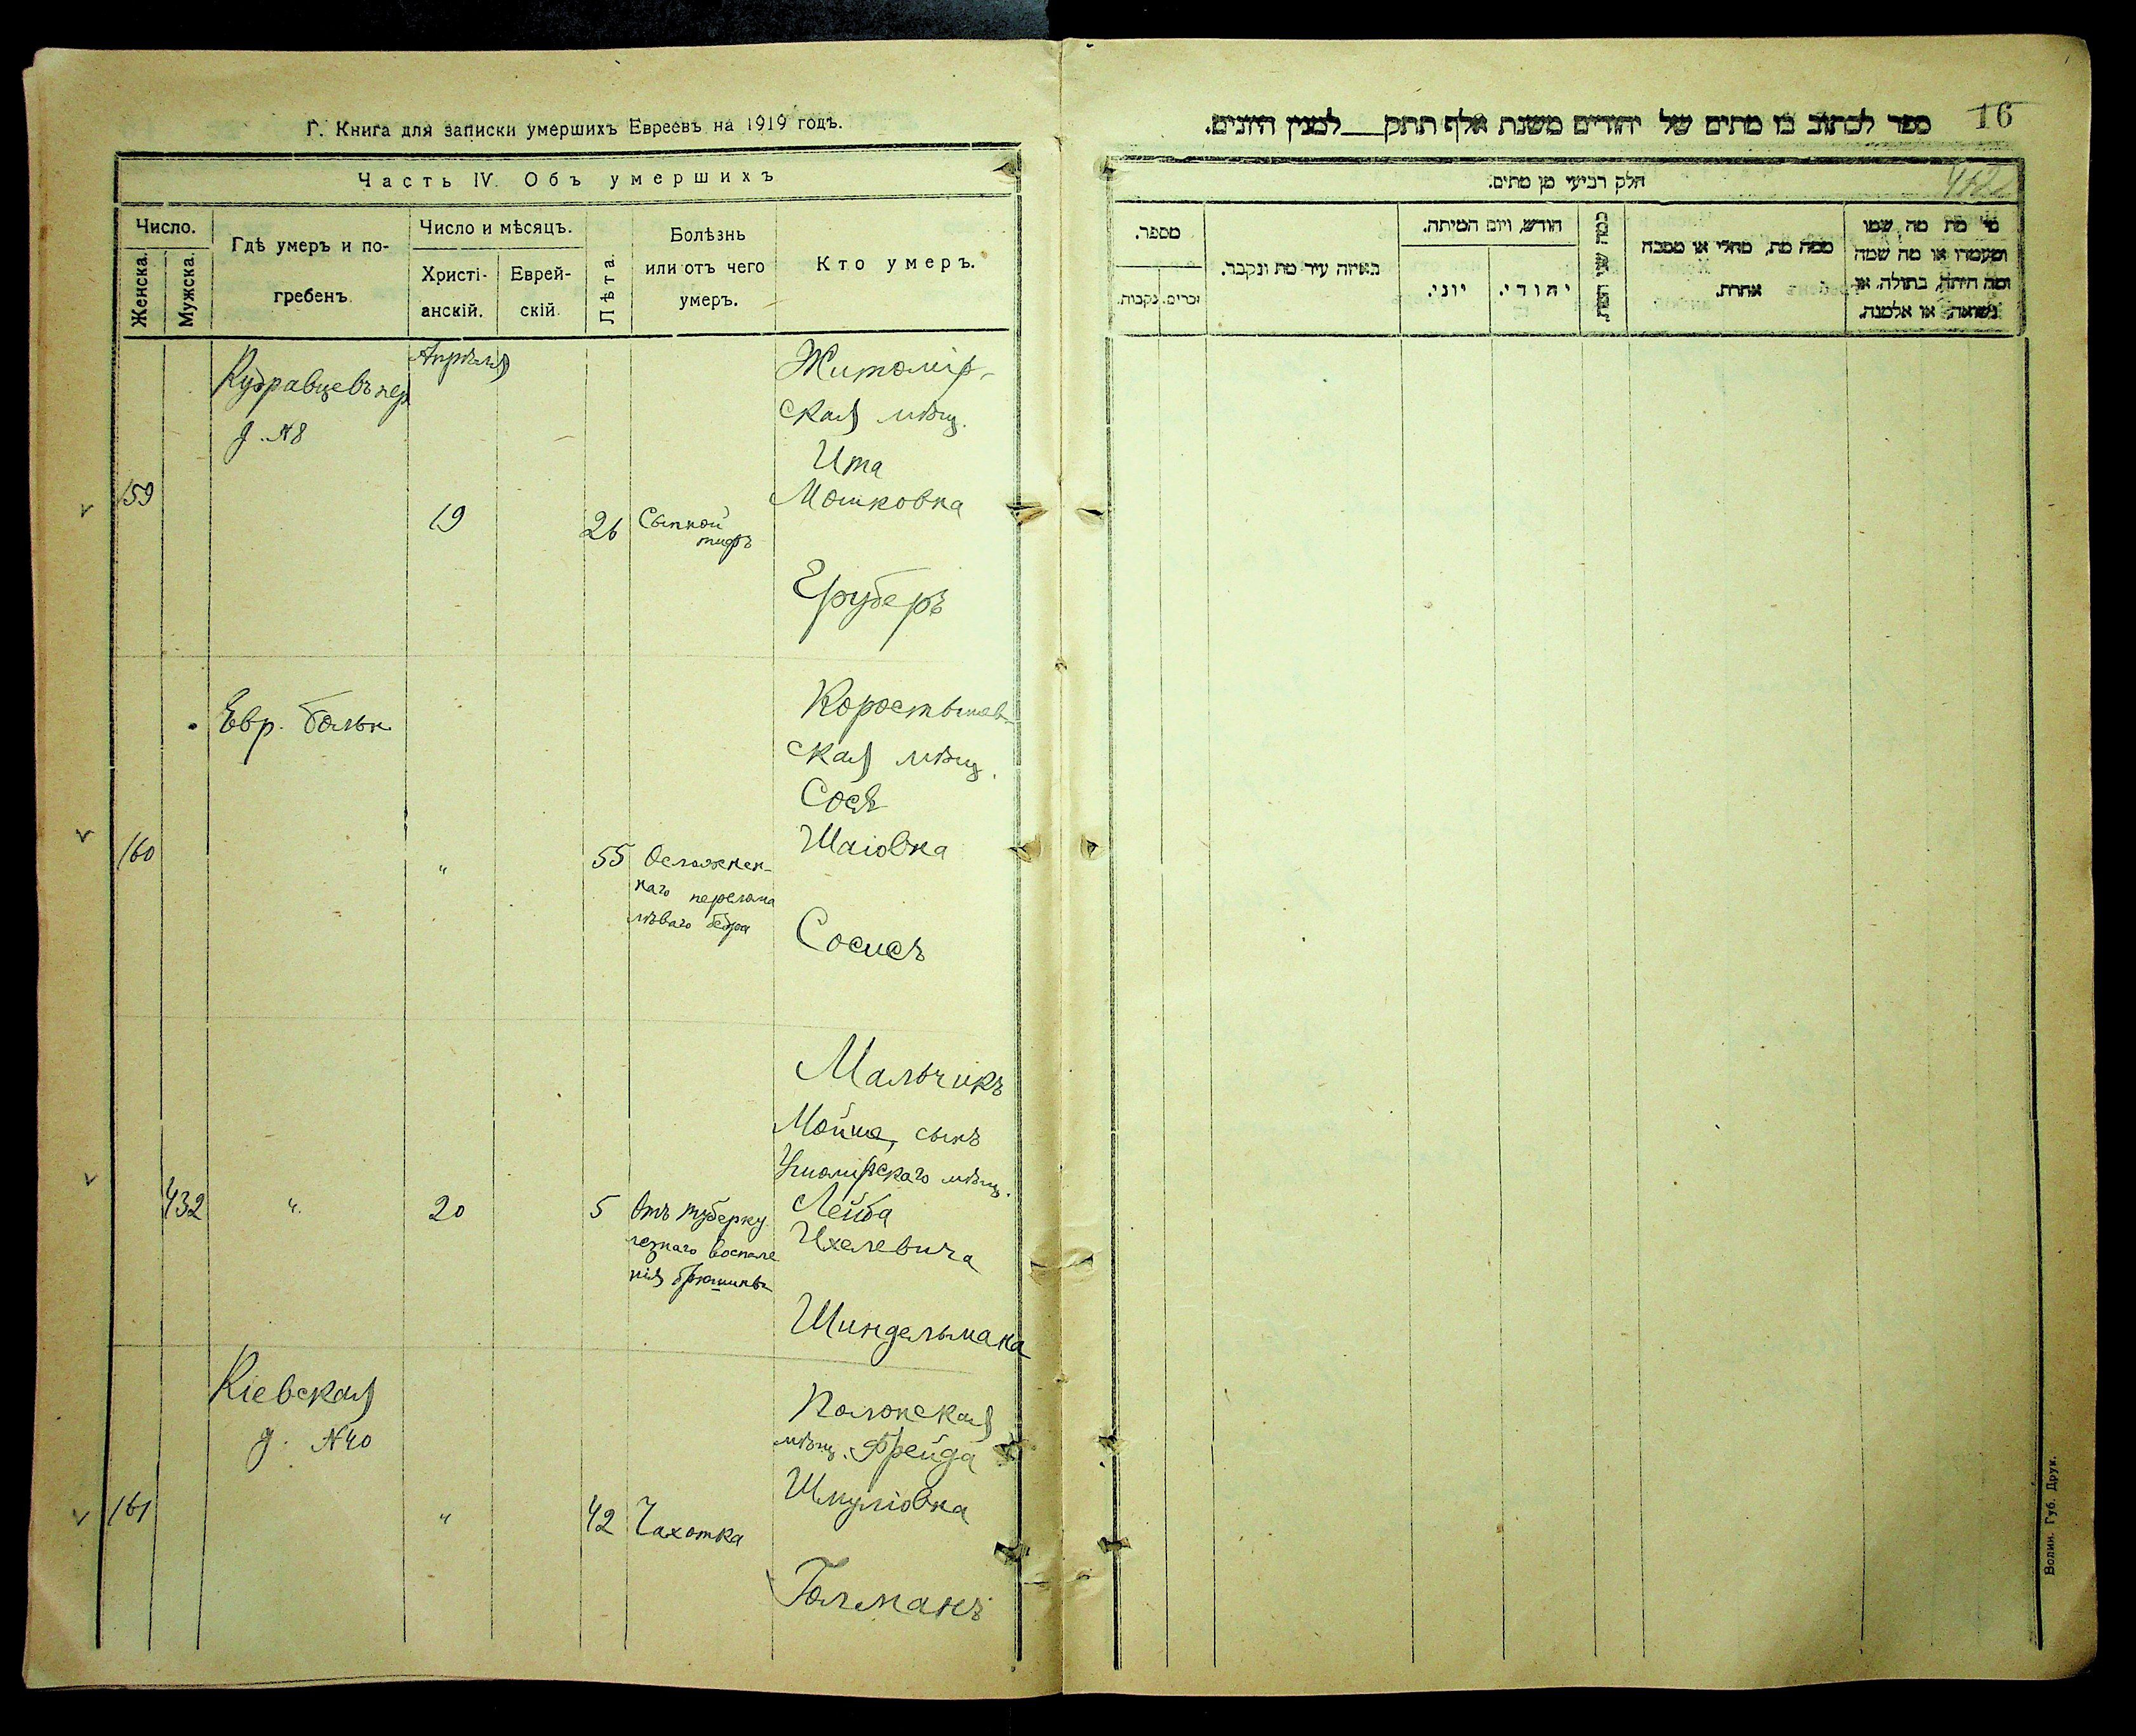 Г. Книга для записки умершихъ Евреевъ на 1919 годъ.
Часть IV. Объ умершихъ
Число.
Женска.
Мужска.
Гдѣ умеръ и по-
гребенъ.
Число и мѣсяцъ.
Христі-
анскій.
Еврей-
скій.
Лѣта.
Болѣзнь
или отъ чего
умеръ.
Кто умеръ.
159
Кудравцевъ пер
д. № 8
Апрѣля
19
26
Сыпной
тифъ
Житомір-
ская мѣщ.
Ита
Мошковна
Груберъ
160
Евр. больн
"
55
Осложнен-
наго перелома
лѣваго бедра
Коростышев-
ская мѣщ.
Сося
Шаіовна
Сосисъ
432
"
20
5
Отъ туберку
лезнаго воспале
нія брюшины
Мальчикъ
Мойше, сынъ
мѣщ.
Лейба
Ихелевича
Шиндельмана
161
Кіевская
д. № 40
"
42
Чахотка
Полонская
мѣщ. Фрейда
Шмуліовна
Голманъ
16
ספר לכתוב בו מתים של יהודים משנת אלף תתק___למנין היונים.
חלק רביעי מן מתים.
מספר.
זכרים.
נקבות.
באיזה עיר מת ונקבר.
חודש, ויום המיתה.
יוני.
יהודי.
כמה שני המת.
ממה מת, מחלי או מסבה
אחרת.
מי מת מה שמו
ומעמדו או מה שמה
ומה היתה, בתולה, או
נשואה, או אלמנה.
Волин. Губ. Друк.